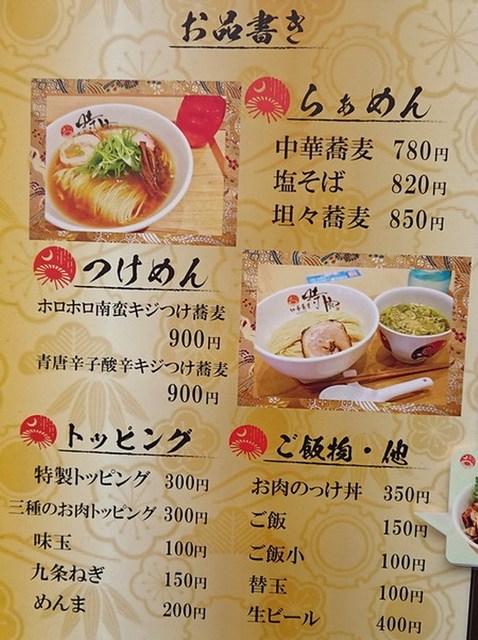 お品書き
らぁめん
中華蕎麦 780円
塩そば 820円
坦々蕎麦 850円
つけめん
ホロホロ南蛮キジつけ蕎麦
900円
青唐辛子酸辛キジつけ蕎麦
900円
トッピング
特製トッピング 300円
三種のお肉トッピング 300円
味玉 100円
九条ねぎ 150円
めんま 200円
ご飯物・他
お肉のっけ丼 350円
ご飯 150円
ご飯小 100円
替玉 100円
生ビール 400円